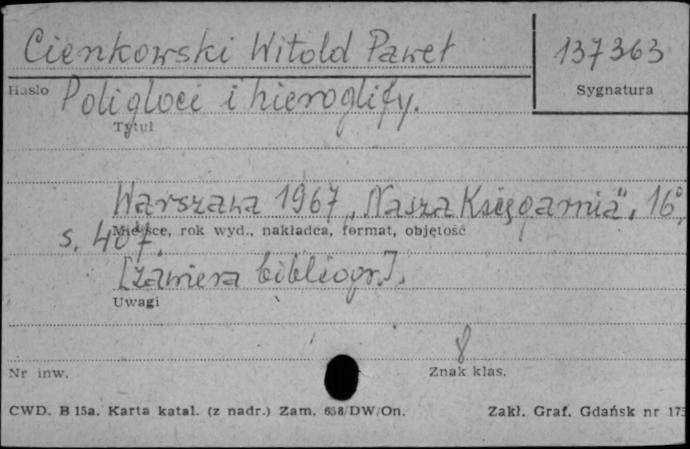 Cienkowski Witold Paweł
137363
Hasło
Sygnatura
Poligloci i hieroglify.
Tytuł
Warszawa 1967 „Nasza Księgarnia", 16°,
Miejsce, rok wyd., nakładca, format, objętość
s. 407.
[zawiera bibliogr.].
Uwagi
8
Nr inw.
Znak klas.
CWD. B 15a. Karta katal. (z nadr.) Zam. 658/DW/On.
Zakł. Graf. Gdańsk nr 175